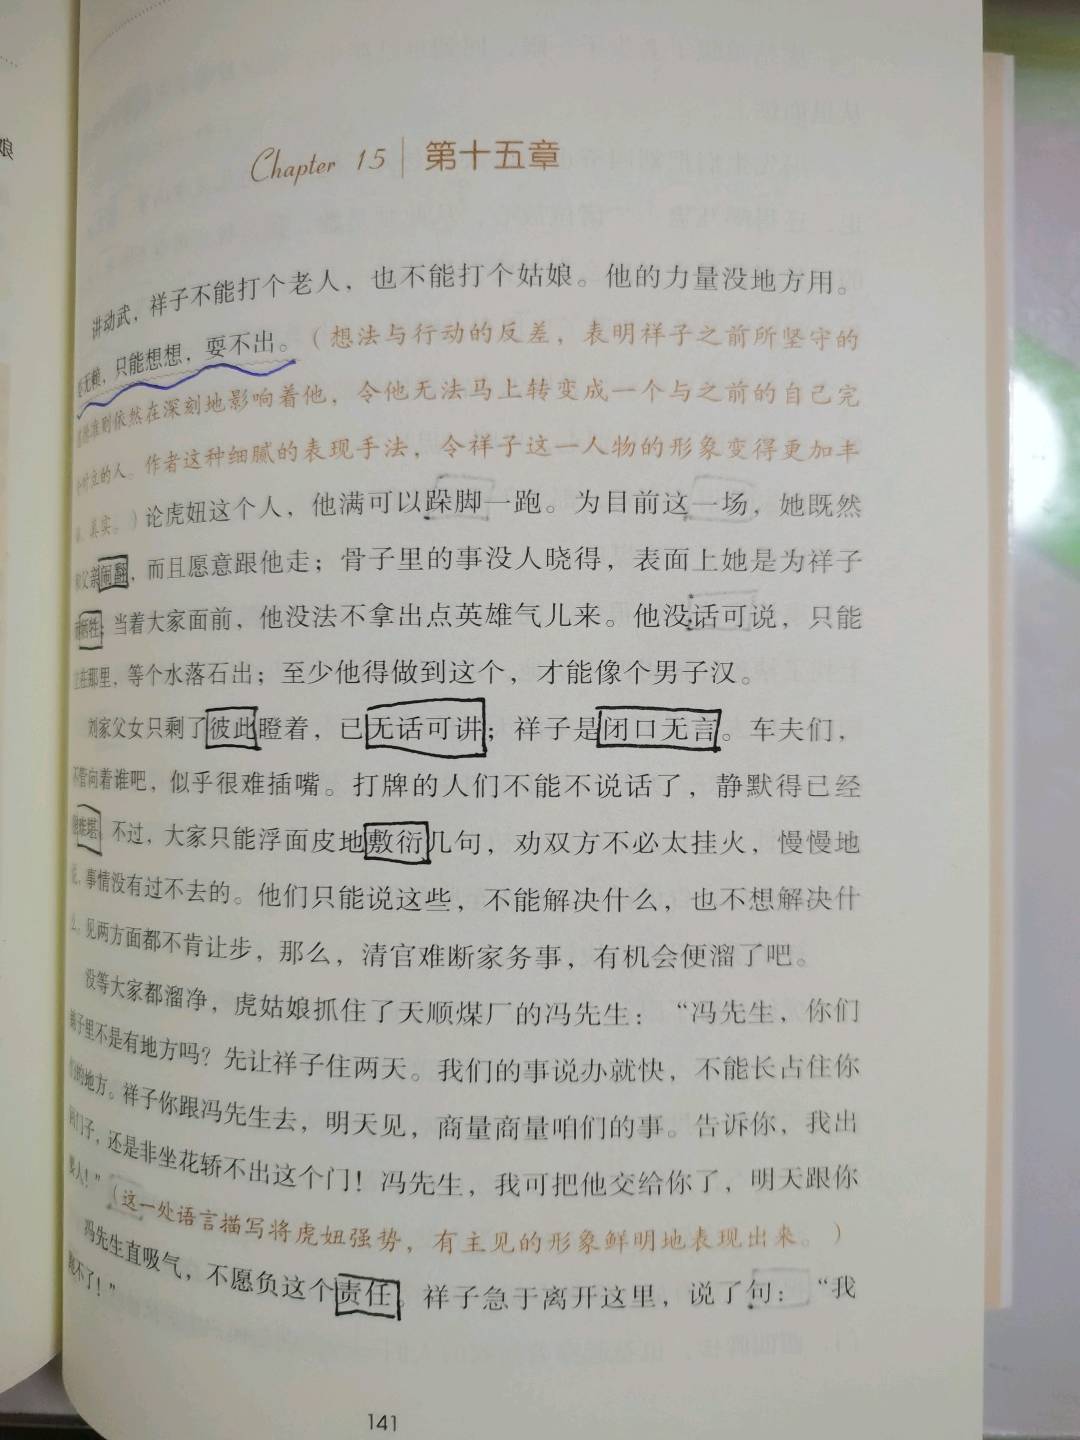 娘
Chapter 15 第十五章
讲动武，祥子不能打个老人，也不能打个姑娘。他的力量没地方用。
无赖，只能想想，耍不出。（想法与行动的反差，表明祥子之前所坚守的
准则依然在深刻地影响着他，令他无法马上转变成一个与之前的自己完
对立的人。作者这种细腻的表现手法，令祥子这一人物的形象变得更加丰
、真实。）论虎妞这个人，他满可以跺脚一跑。为目前这一场，她既然
和父亲闹翻，而且愿意跟他走；骨子里的事没人晓得，表面上她是为祥子
而牺牲；当着大家面前，他没法不拿出点英雄气儿来。他没话可说，只能
立在那里，等个水落石出；至少他得做到这个，才能像个男子汉。
刘家父女只剩了彼此瞪着，已无话可讲；祥子是闭口无言。车夫们，
不管向着谁吧，似乎很难插嘴。打牌的人们不能不说话了，静默得已经
很难堪。不过，大家只能浮面皮地敷衍几句，劝双方不必太挂火，慢慢地
说，事情没有过不去的。他们只能说这些，不能解决什么，也不想解决什
么。见两方面都不肯让步，那么，清官难断家务事，有机会便溜了吧。
没等大家都溜净，虎姑娘抓住了天顺煤厂的冯先生：“冯先生，你们
铺子里不是有地方吗？先让祥子住两天。我们的事说办就快，不能长占住你
们的地方。祥子你跟冯先生去，明天见，商量商量咱们的事。告诉你，我出
回门子，还是非坐花轿不出这个门！冯先生，我可把他交给你了，明天跟你
要人！”（这一处语言描写将虎妞强势，有主见的形象鲜明地表现出来。）
冯先生直吸气，不愿负这个责任。祥子急于离开这里，说了句：“我
跑不了！”
141